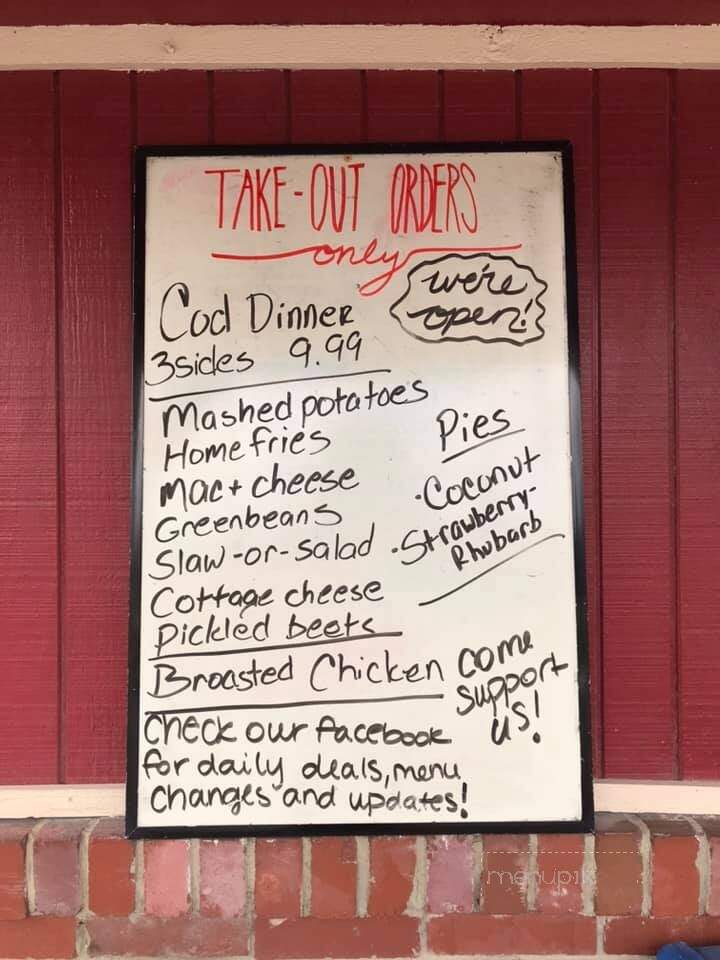 TAKE-OUT ORDERS
only
we're
open!
Cod Dinner
3sides 9.99
Mashed potatoes
Home fries
Mac + cheese
Greenbeans
Slaw-or-salad
Cottage cheese
Pickled beets
Pies
·Coconut
·Strawberry-
Rhubarb
Broasted Chicken
come
support
us!
Check our facebook
for daily deals, menu
changes and updates!
menupix